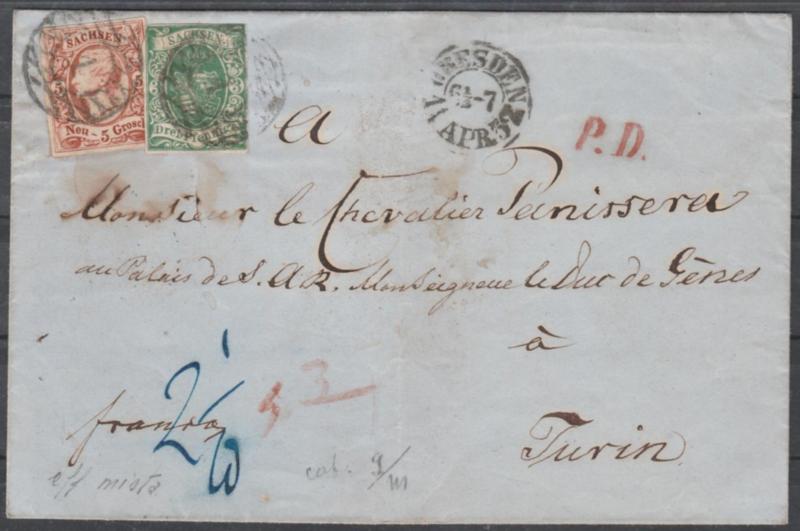 SACHSEN
5 5
Neu-5 Grosch
SACHSEN
3 3
Drei Pfennige
DRESDEN
11 APR
P.D.
a
Monsieur le Chevalier Panissera
au Palais de S. A. R. Monseigneur le Duc de Gènes
à
Turin
franco
3
eff mista